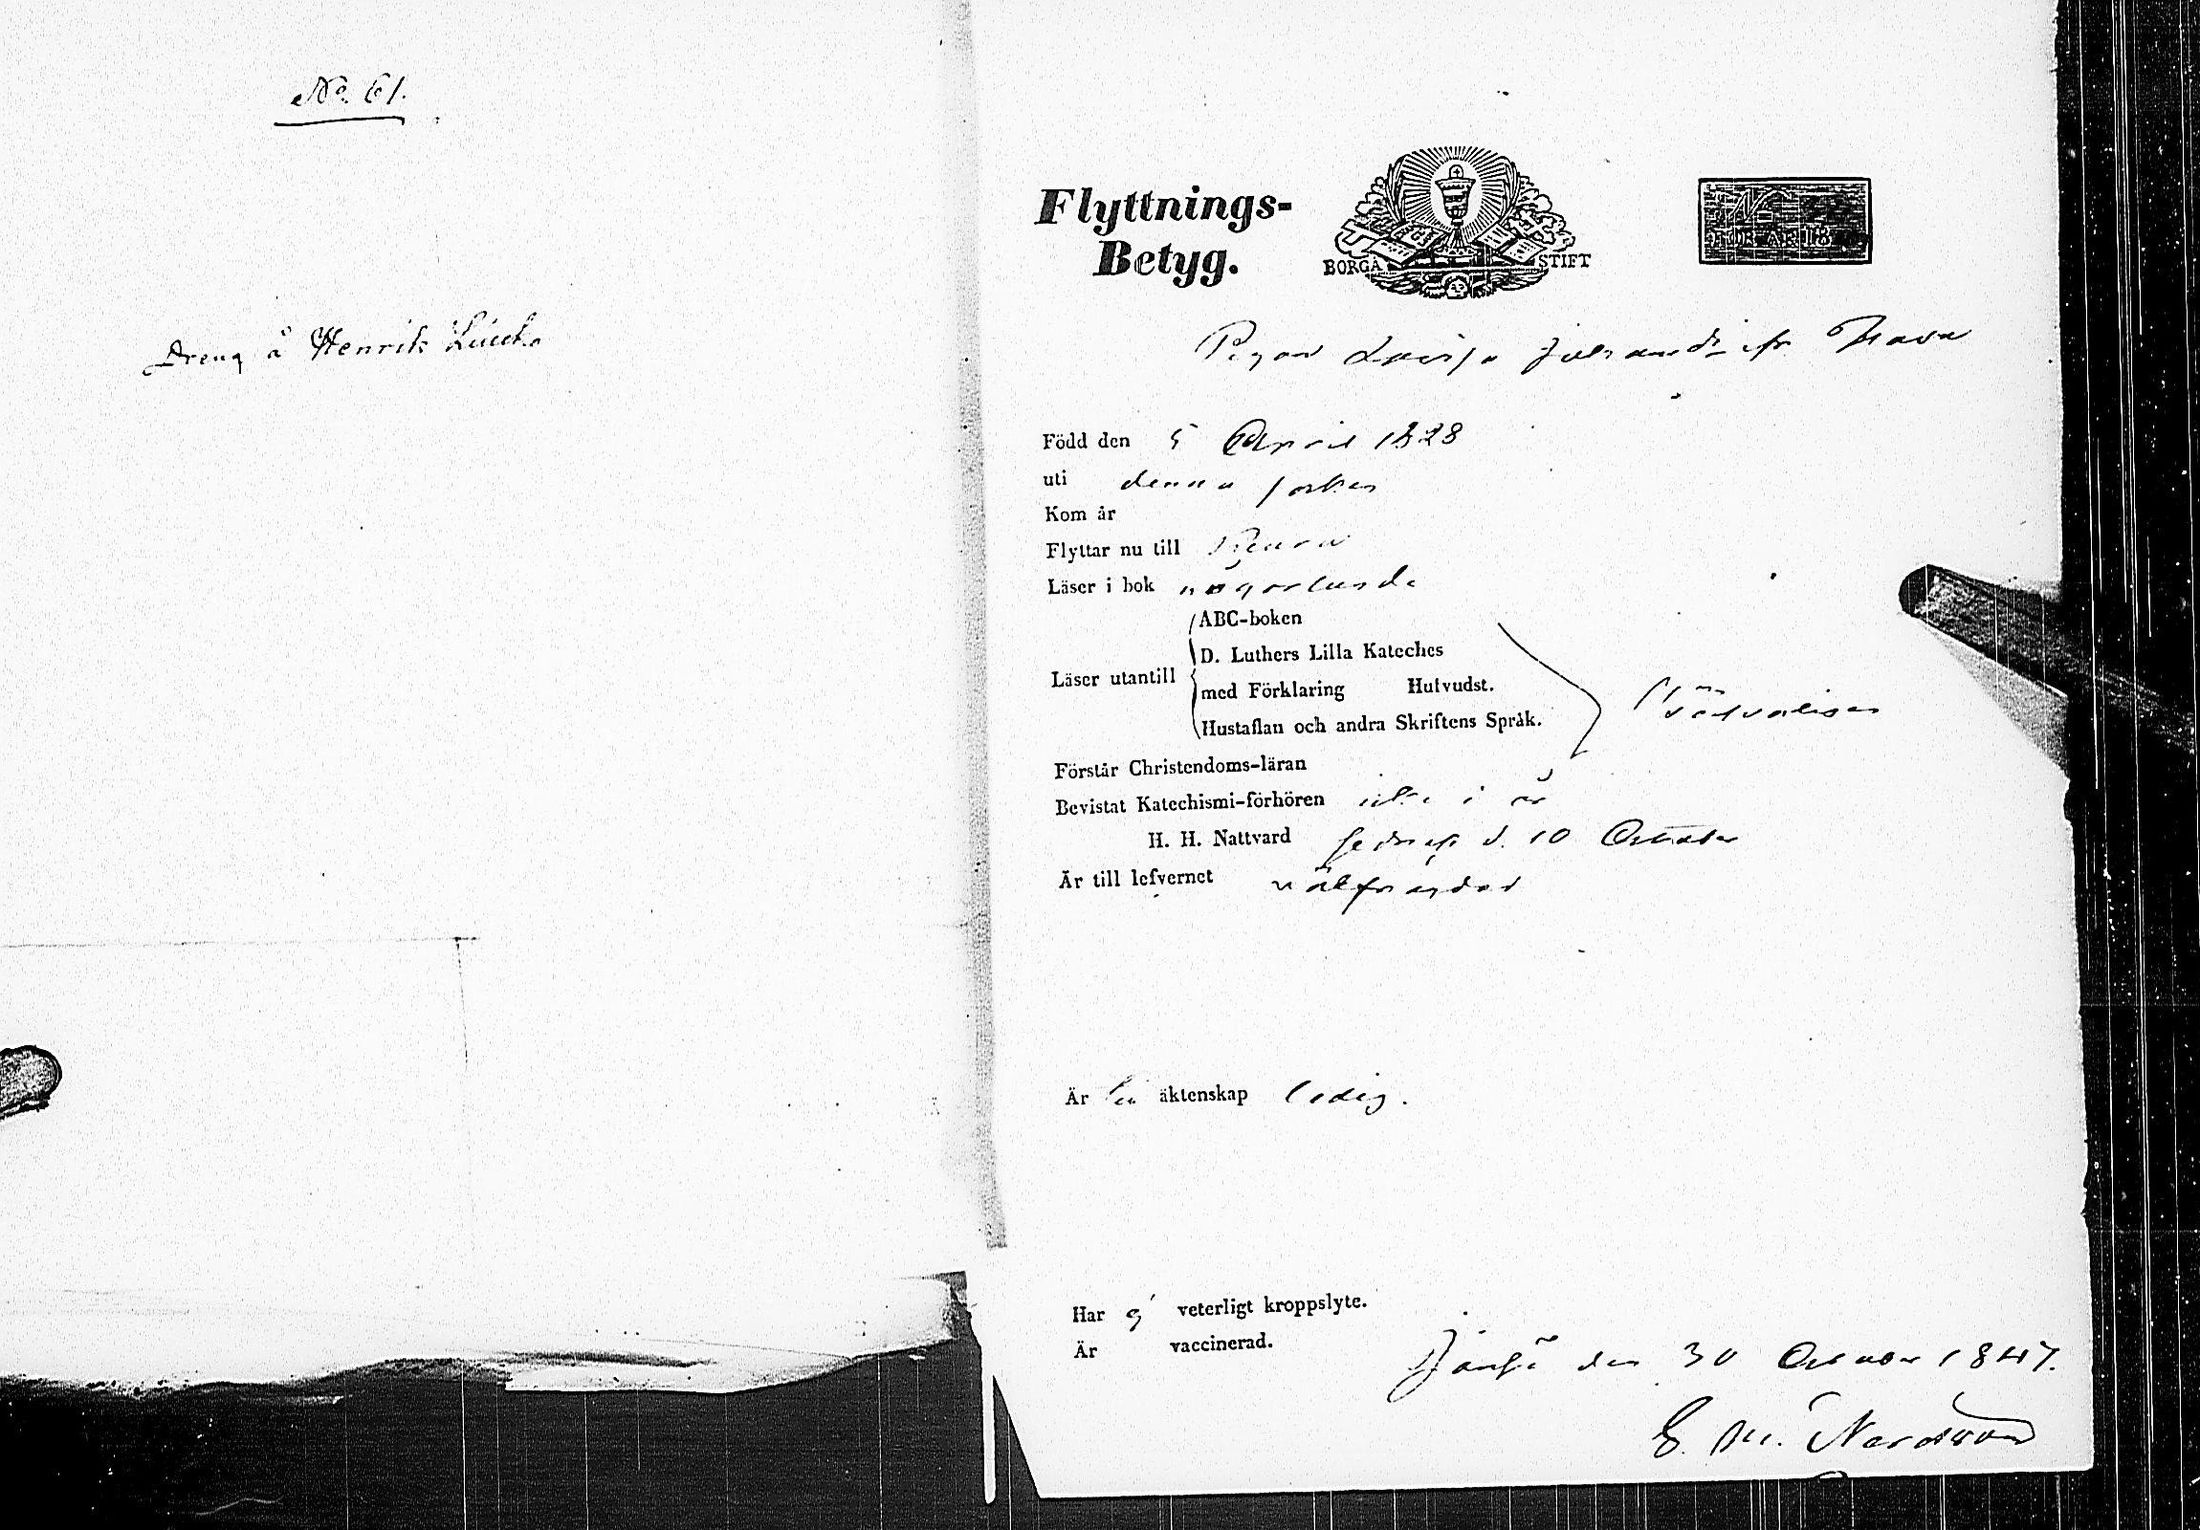 No. 61.
Dreng å Henrik
Flyttnings-
Betyg.
BORGÅ STIFT
Pigan Lovisa Johansdr ifr.
Född den 5 April 1828
uti denna socken
Kom år
Flyttar nu till
Läser i bok någorlunda
Läser utantill
ABC-boken
D. Luthers Lilla Kateches
med Förklaring Hufvudst.
Hustaflan och andra Skriftens Språk.
Förstår Christendoms-läran
Bevistat Katechismi-förhören icke i år
H. H. Nattvard d. 10 October
Är till lefvernet välfrägdad
Är till äktenskap ledig.
Har ej veterligt kroppslyte.
Är vaccinerad.
den 30 October 1847.
E. M.